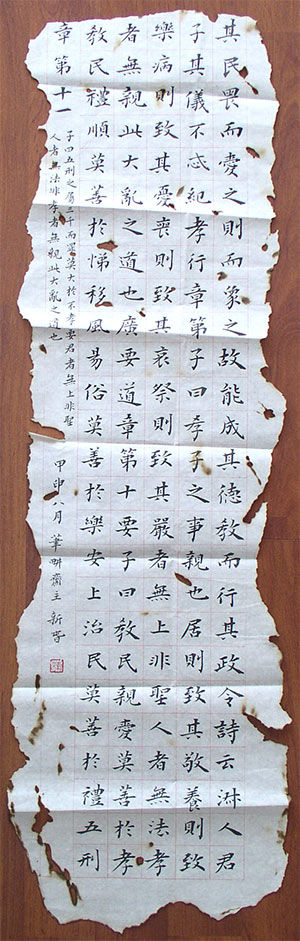 其民畏而愛之則而象之故能成其德教而行其政令詩云淑人君
子其儀不忒紀孝行章第子曰孝子之事親也居則致其敬養則致
樂病則致其憂喪則致其哀祭則致其嚴者無上非聖人者無法孝
者無親此大亂之道也廣要道章第十要子曰教民親愛莫善於孝
教民禮順莫善於悌移風易俗莫善於樂安上治民莫善於禮五刑
章第十一
子曰五刑之屬三千而罪莫大於不孝要君者無上非聖
人者無法非孝者無親此大亂之道也
甲申八月 筆畊齋主 新